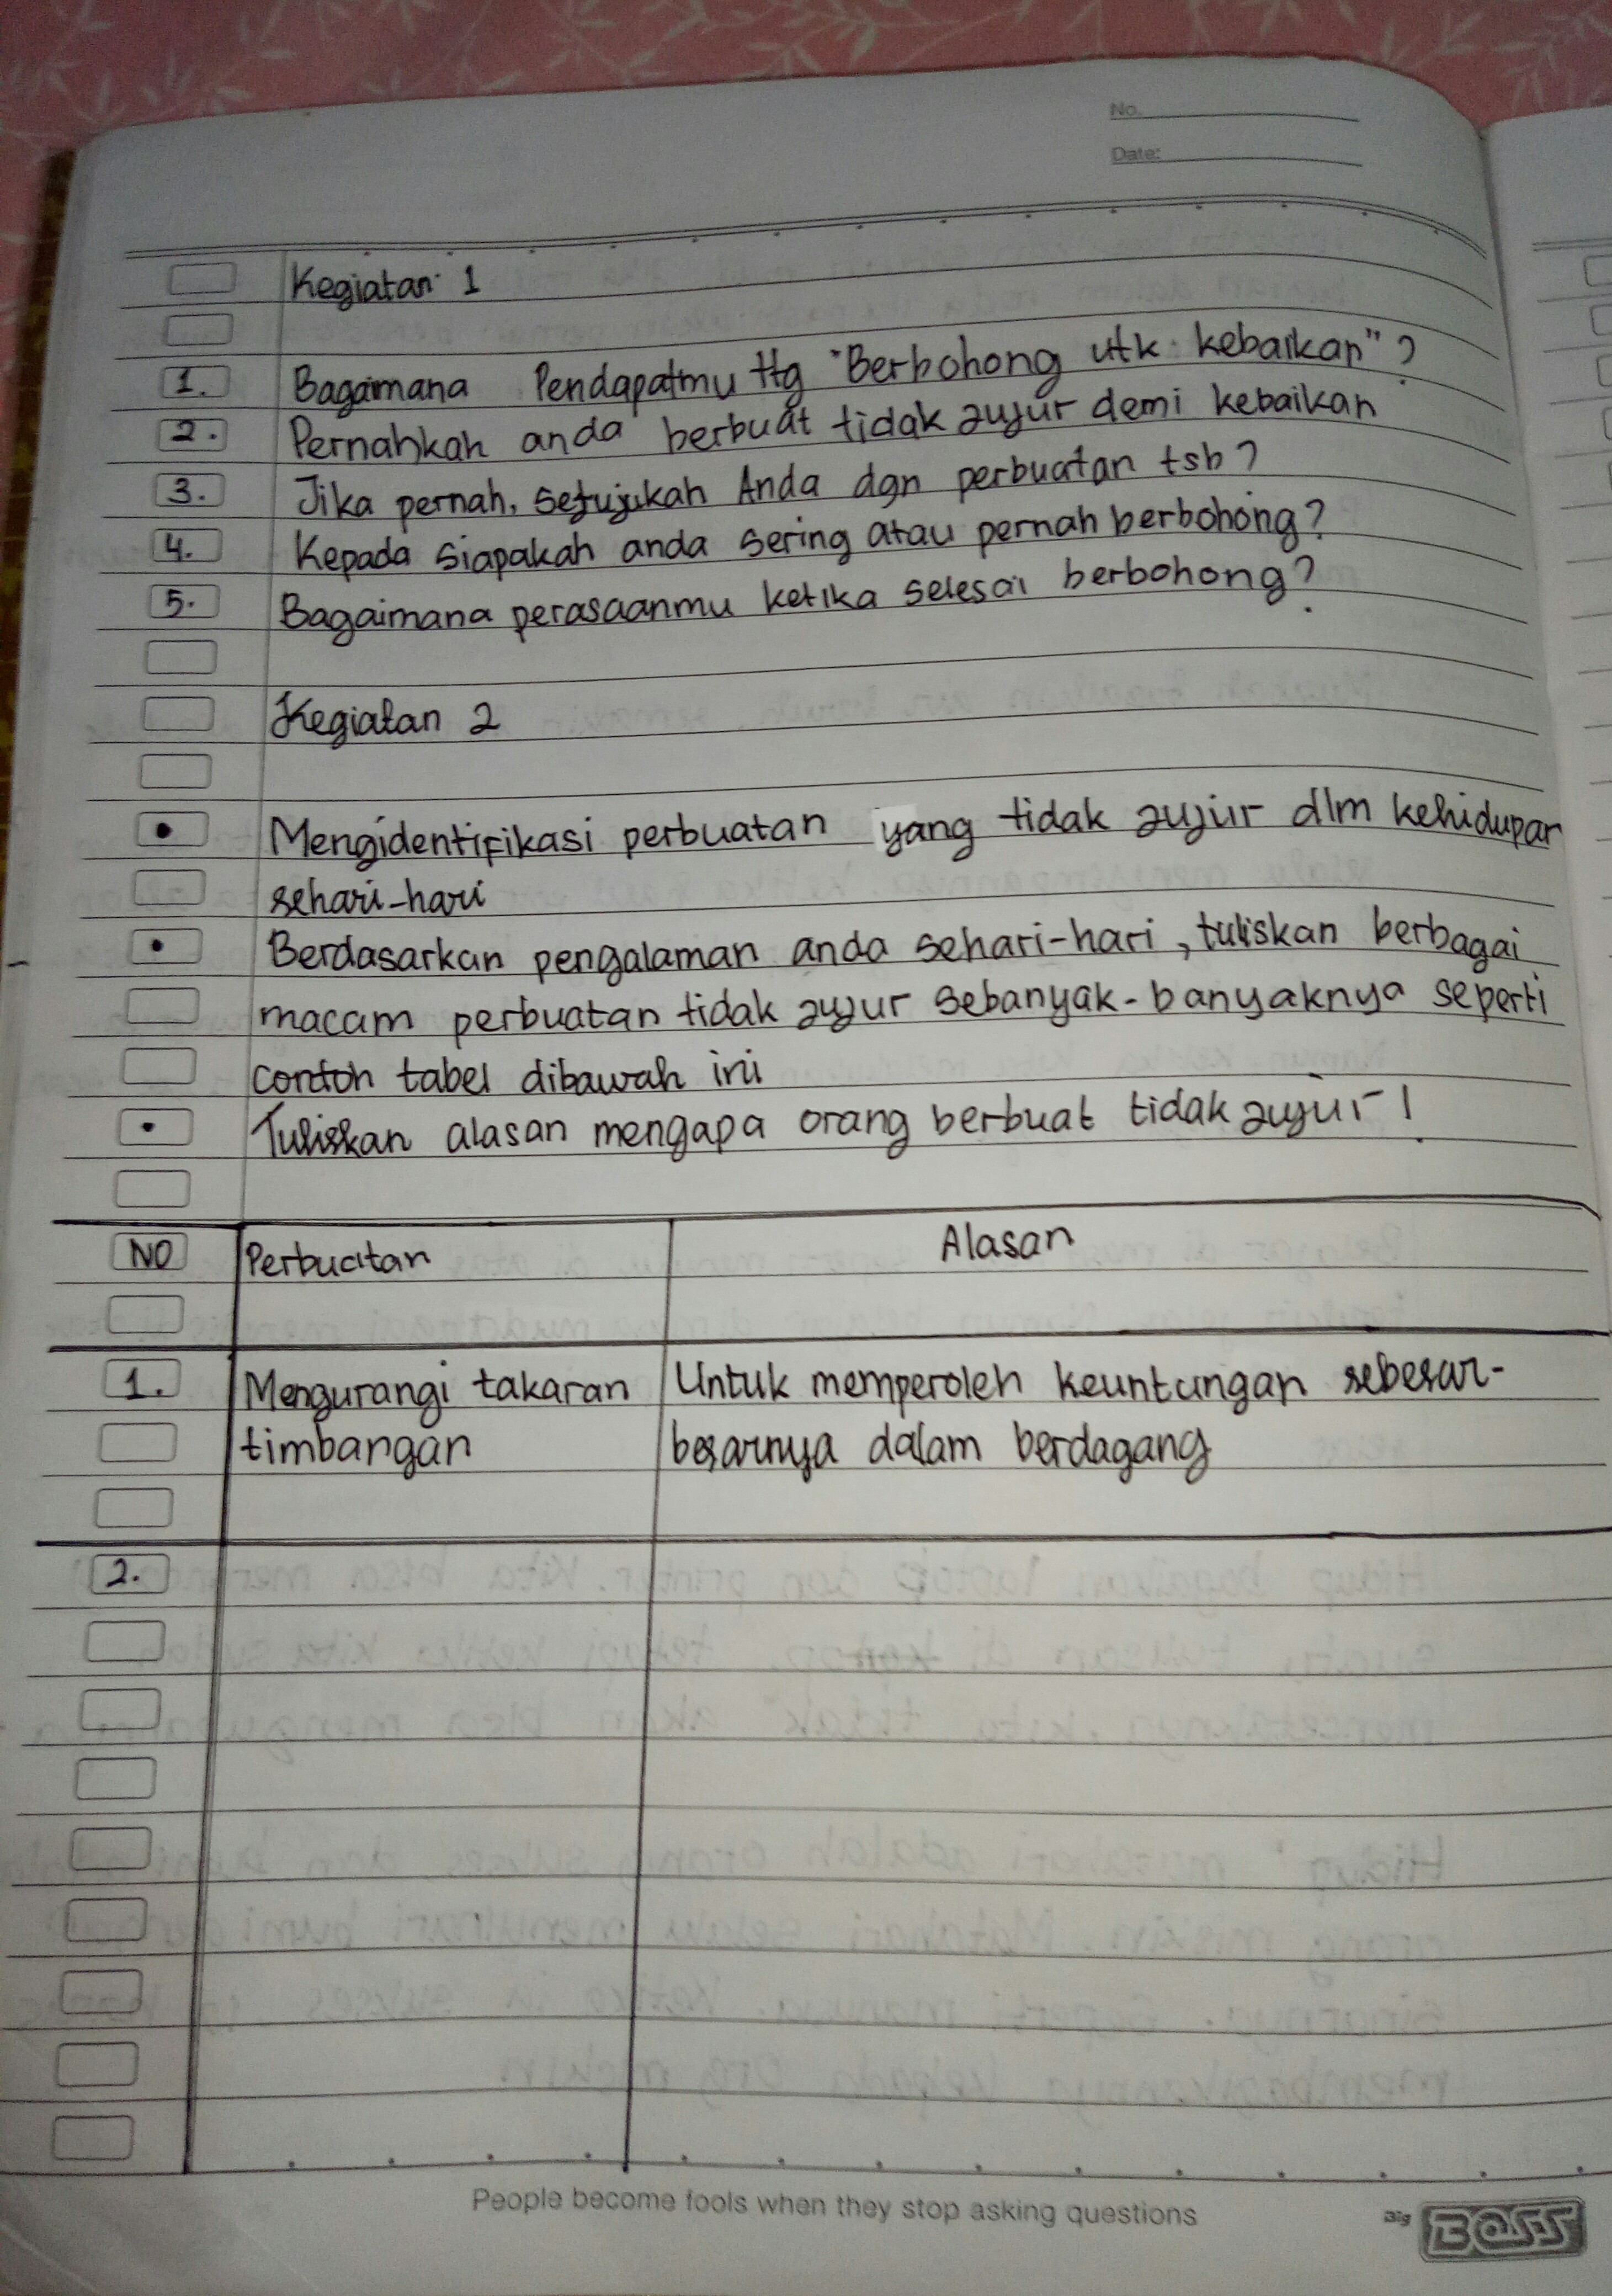 No.
Date:
Kegiatan 1
1. Bagaimana Pendapatmu ttg "Berbohong utk kebaikan"?
2. Pernahkah anda berbuat tidak jujur demi kebaikan
3. Jika pernah, Setujukah Anda dgn perbuatan tsb?
4. Kepada siapakah anda sering atau pernah berbohong?
5. Bagaimana perasaanmu ketika selesai berbohong?
Kegiatan 2
• Mengidentifikasi perbuatan yang tidak jujur dlm kehidupan
sehari-hari
• Berdasarkan pengalaman anda sehari-hari, tuliskan berbagai
macam perbuatan tidak jujur sebanyak-banyaknya seperti
contoh tabel dibawah ini
• Tuliskan alasan mengapa orang berbuat tidak jujur!
NO Perbuatan Alasan
1. Mengurangi takaran Untuk memperoleh keuntungan sebesar-
timbangan besarnya dalam berdagang
2.
People become fools when they stop asking questions
Big BOSS